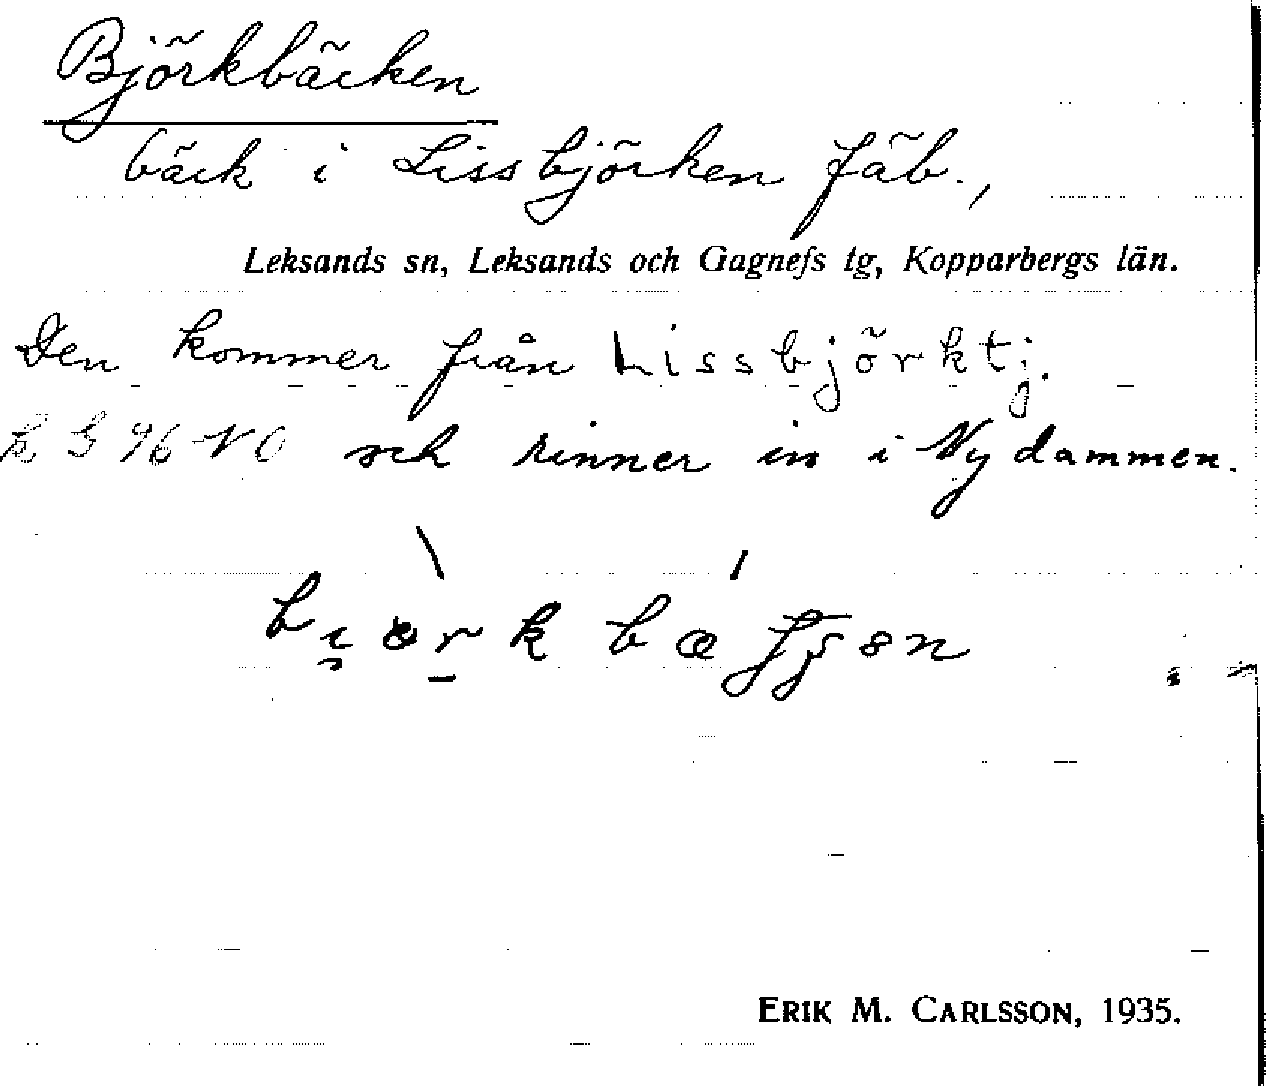 Björkbäcken
bäck i Lissbjörken fäb.,
Leksands sn, Leksands och Gagnefs tg, Kopparbergs län.
Den kommer från Lissbjörktj.
96 NO och rinner in i Nydammen.
ERIK M. CARLSSON, 1935.